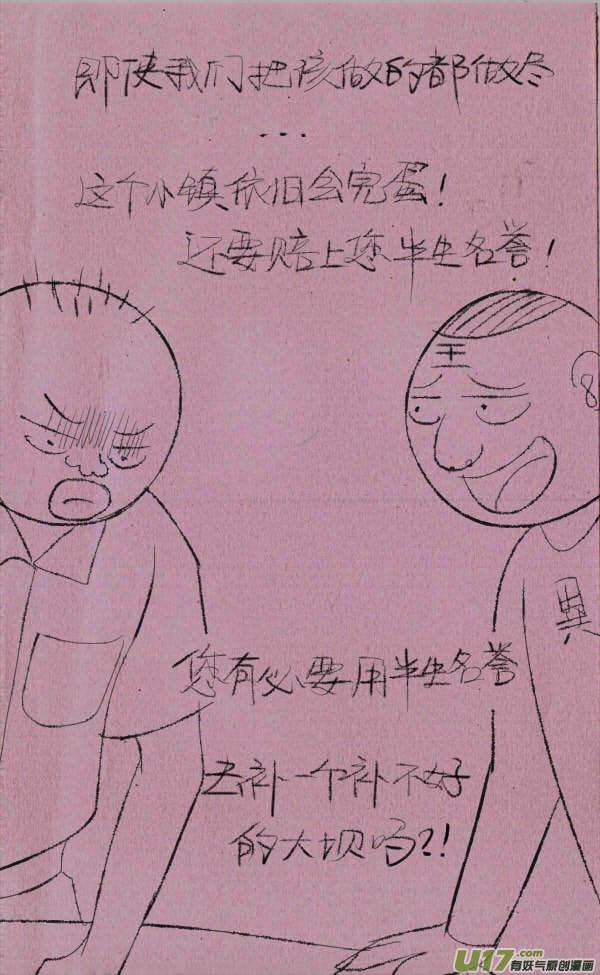 即使我们把该做的都做尽
...
这个小镇依旧会完蛋!
还要赔上您半生名誉!
王
8
異
您有必要用半生名誉
去补一个补不好
的大坝吗?!
U17.com
有妖气原创漫画